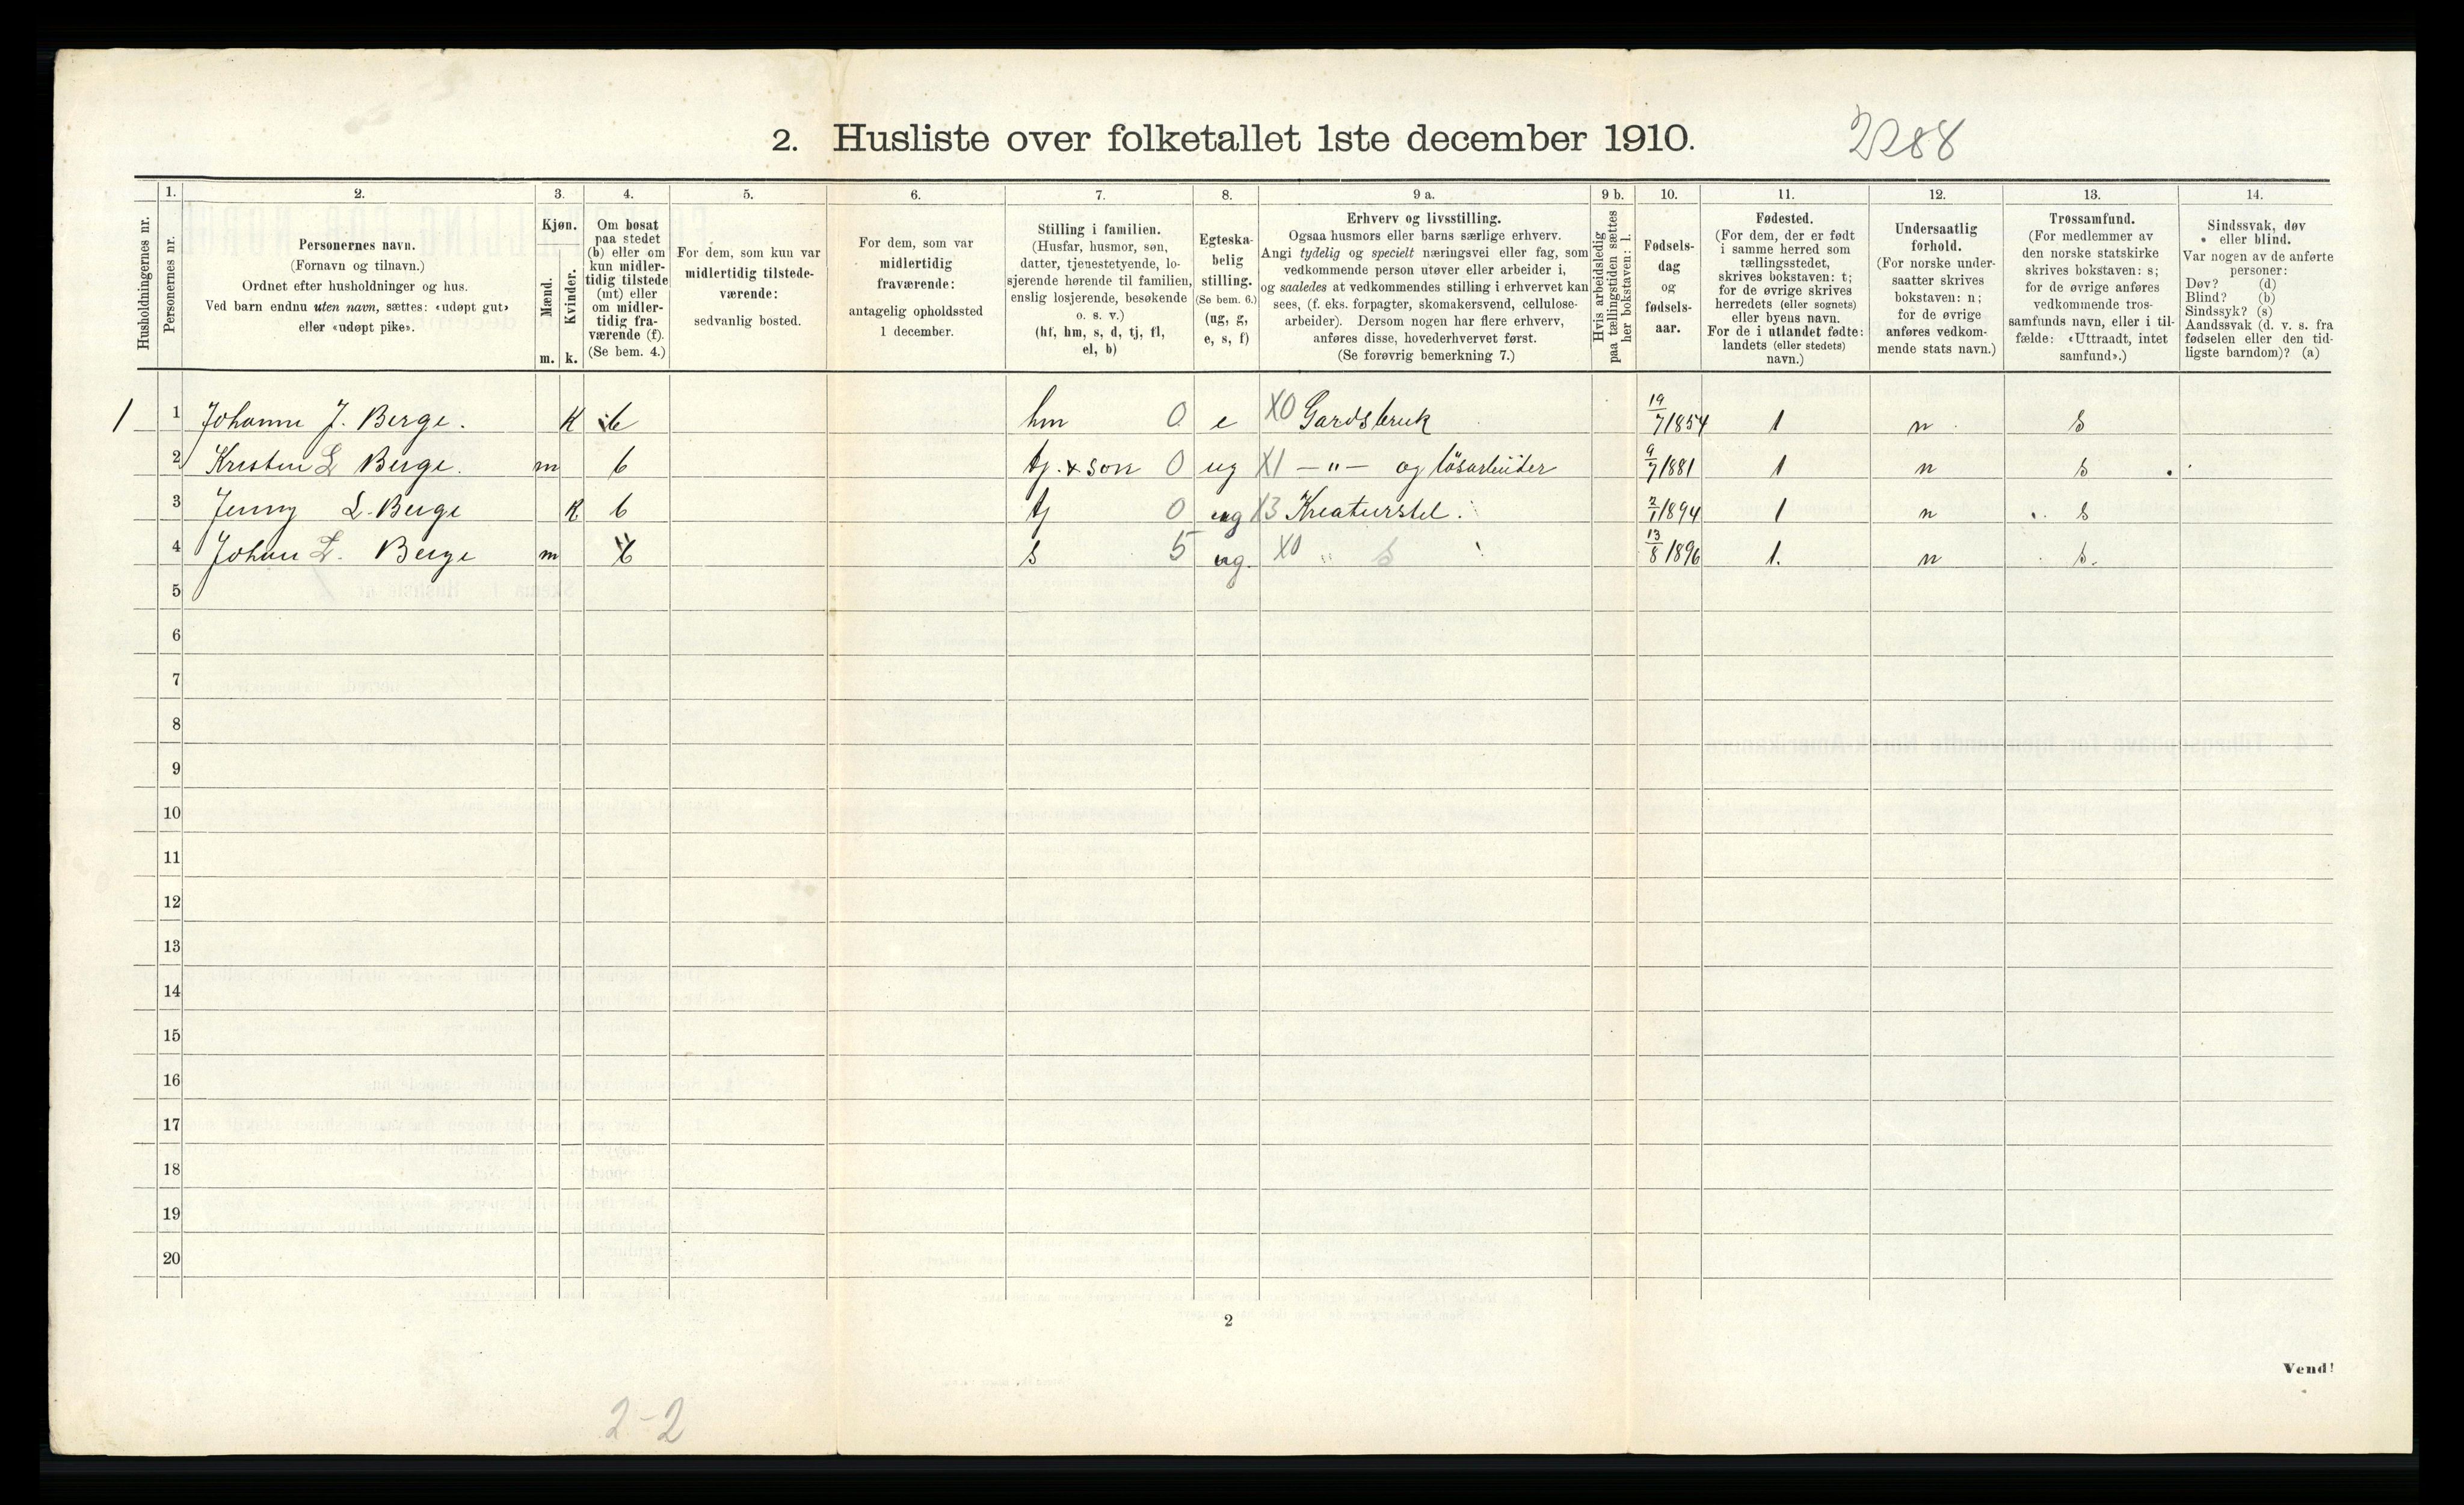 2. Husliste over folketallet 1ste december 1910. 2288
1. 2. 3. 4. 5. 6. 7. 8. 9 a. 9 b. 10. 11. 12. 13. 14.
Husholdningernes nr.
Personernes nr.
Personernes navn.
(Fornavn og tilnavn.)
Ordnet efter husholdninger og hus.
Ved barn endnu uten navn, sættes: «udøpt gut»
eller «udøpt pike».
Kjøn.
Mænd.
Kvinder.
m. k.
Om bosat
paa stedet
(b) eller om
kun midler-
tidig tilstede
(mt) eller
om midler-
tidig fra-
værende (f).
(Se bem. 4.)
For dem, som kun var
midlertidig tilstede-
værende:
sedvanlig bosted.
For dem, som var
midlertidig
fraværende:
antagelig opholdssted
1 december.
Stilling i familien.
(Husfar, husmor, søn,
datter, tjenestetyende, lo-
sjerende hørende til familien,
enslig losjerende, besøkende
o. s. v.)
(hf, hm, s, d, tj, fl,
el, b)
Egteska-
belig
stilling.
(Se bem. 6.)
(ug, g,
e, s, f)
Erhverv og livsstilling.
Ogsaa husmors eller barns særlige erhverv.
Angi tydelig og specielt næringsvei eller fag, som
vedkommende person utøver eller arbeider i,
og saaledes at vedkommendes stilling i erhvervet kan
sees, (f. eks. forpagter, skomakersvend, cellulose-
arbeider). Dersom nogen har flere erhverv,
anføres disse, hovederhvervet først.
(Se forøvrig bemerkning 7.)
Hvis arbeidsledig
paa tællingstiden sættes
her bokstaven: l.
Fødsels-
dag
og
fødsels-
aar.
Fødested.
(For dem, der er født
i samme herred som
tællingsstedet,
skrives bokstaven: t;
for de øvrige skrives
herredets (eller sognets)
eller byens navn.
For de i utlandet fødte:
landets (eller stedets)
navn.)
Undersaatlig
forhold.
(For norske under-
saatter skrives
bokstaven: n;
for de øvrige
anføres vedkom-
mende stats navn.)
Trossamfund.
(For medlemmer av
den norske statskirke
skrives bokstaven: s;
for de øvrige anføres
vedkommende tros-
samfunds navn, eller i til-
fælde: «Uttraadt, intet
samfund».)
Sindssvak, døv
eller blind.
Var nogen av de anførte
personer:
Døv? (d)
Blind? (b)
Sindssyk? (s)
Aandssvak (d. v. s. fra
fødselen eller den tid-
ligste barndom)? (a)
1 1 Johanne J. Berge. K b hm 0 e X0 Gardsbruk 19/7 1854 1 n s
2 Kristen L Berge. m b tj. x son 0 ug X1 —"— og løsarbeider 9/7 1881 1 n s
3 Jenny L. Berge K b tj 0 ug X3 Kreaturstel. 2/1 1894 1 n s
4 Johan L. Berge m b s 5 ug. X0 " s 13/8 1896 1. n s.
5
6
7
8
9
10
11
12
13
14
15
16
17
18
19
20
2
Vend!
2-2